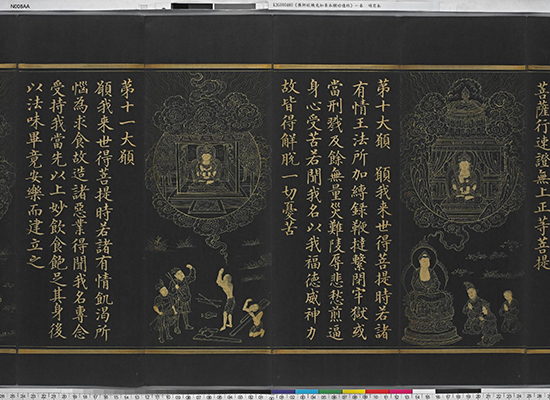 N008AA
菩薩行速證無上正等菩提
苐十大願 願我來世得菩提時若諸
有情王法所加縛錄鞭撻繫閉牢獄或
當刑戮及餘無量災難陵辱悲愁煎逼
身心受苦若聞我名以我福德威神力
故皆得解脫一切憂苦
苐十一大願
願我來世得菩提時若諸有情飢渴所
惱為求食故造諸惡業得聞我名專念
受持我當先以上妙飲食飽足其身後
以法味畢竟安樂而建立之